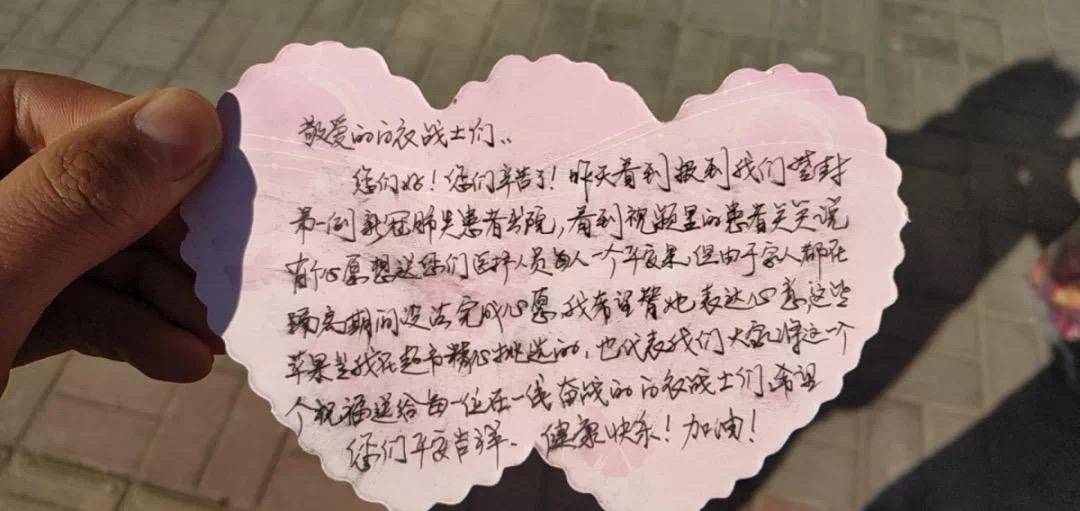 敬爱的白衣战士们..
您们好！您们辛苦了！昨天看到报到我们登封
第一例新冠肺炎患者出院，看到视频里的患者关关说
有个心愿想送您们医护人员每人一个平安果，但由于家人都在
隔离期间没法完成心愿，我希望替她表达心意，这些
苹果是我在超市精心挑选的，也代表我们大家将这一个
个祝福送给每一位在一线奋战的白衣战士们，希望
您们平安吉祥、健康快乐！加油！